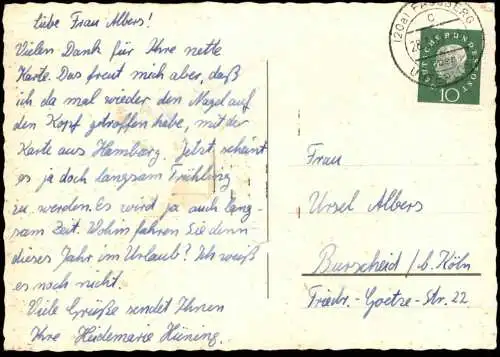 Liebe Frau Albers!
Vielen Dank für Ihre nette
Karte. Das freut mich aber, daß
ich da mal wieder den Nagel auf
den Kopf getroffen habe, mit der
Karte aus Hamburg. Jetzt scheint
es ja doch langsam Frühling
zu werden. Es wird ja auch lang-
sam Zeit. Wohin fahren Sie denn
dieses Jahr im Urlaub? Ich weiß
es noch nicht.
Viele Grüße sendet Ihnen
Ihre Heidemarie Hüning.
(20a) FASSBERG
c
DEUTSCHE BUNDESPOST
10
Frau
Ursel Albers
Burscheid / b. Köln
Friedr.-Goetze-Str. 22